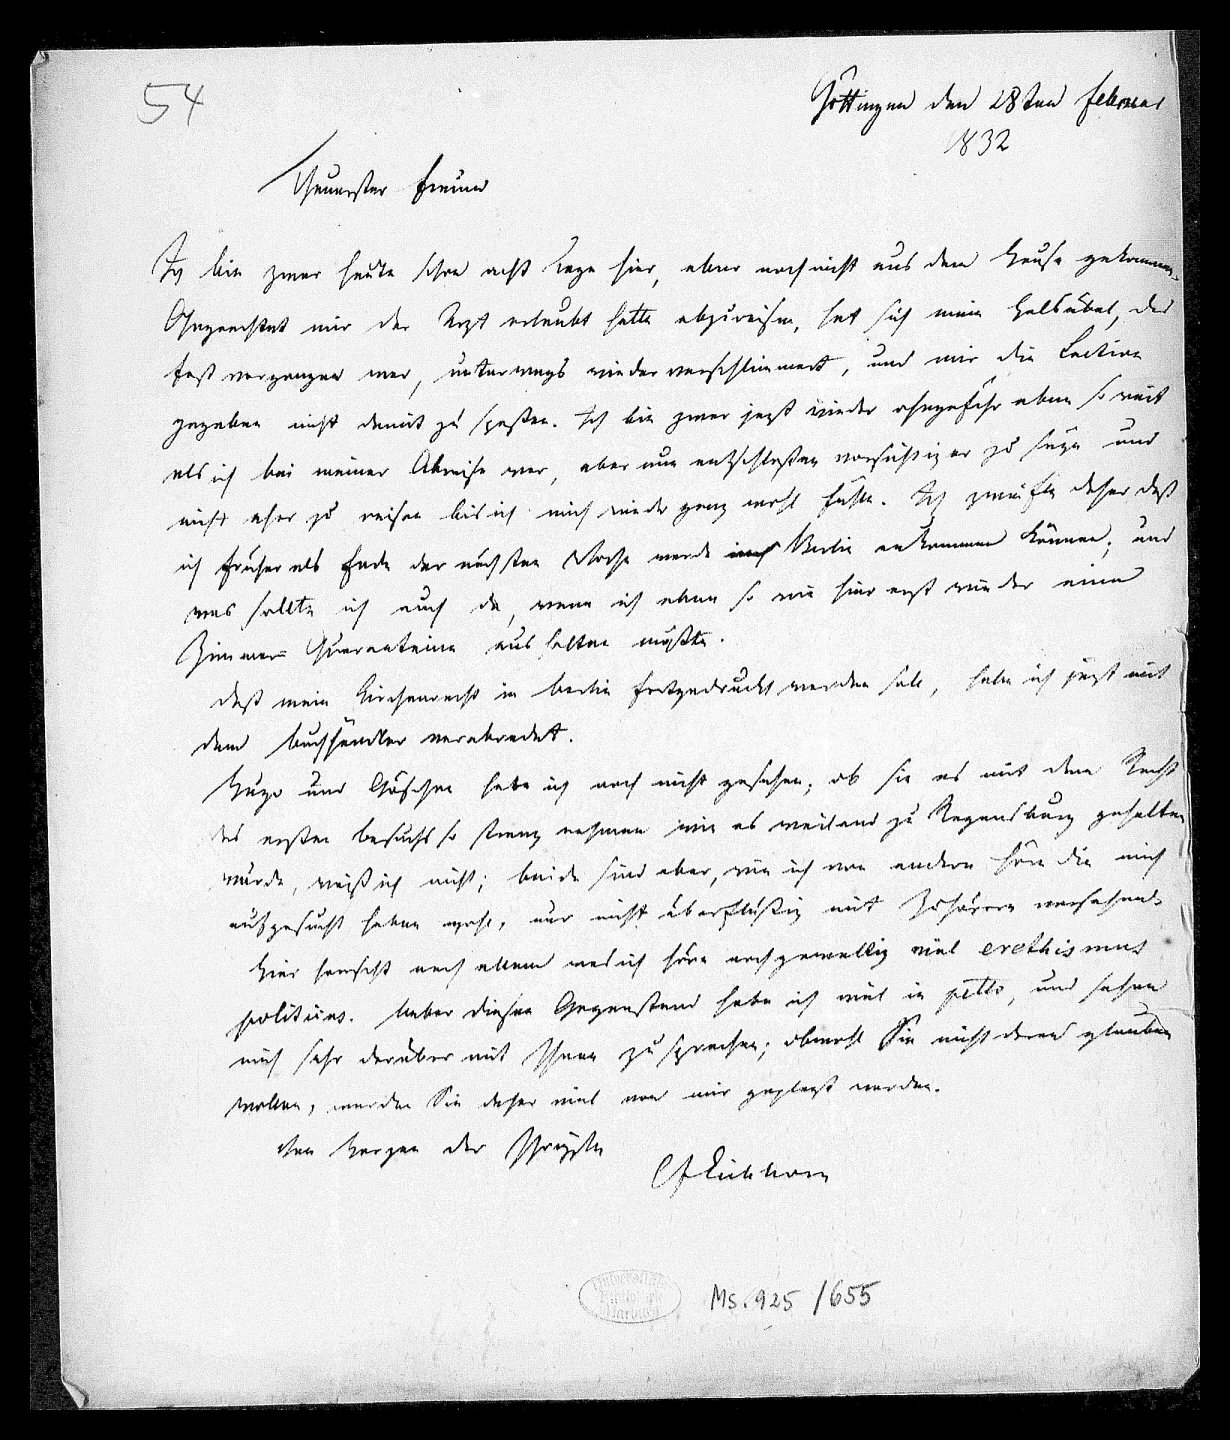 54
Göttingen den 28sten Februar
1832
Theuerster Freund
Ich bin zwar heute schon acht Tage hier, aber noch nicht aus dem Hause gekommen.
Ohngeachtet mir der Arzt erlaubt hatte abzureisen, hat sich mein Halsübel, das
fast vergangen war, unterwegs wieder verschlimmert, und mir die Lection
gegeben nicht damit zu spaßen. Ich bin zwar jezt wieder ohngefähr eben so weit
als ich bei meiner Abreise war, aber nun entschloßen vorsichtiger zu seyn und
nicht eher zu reisen bis ich mich wieder ganz wohl fühle. Ich zweifle daher daß
ich früher als Ende der nächsten Woche werde in Berlin ankommen können; und
was sollte ich auch da, wenn ich eben so wie hier erst wieder eine
Zimmer= Quarantaine aushalten müßte.
Daß mein Kirchenrecht in Berlin fortgedruckt werden soll, habe ich jezt mit
dem Buchhändler verabredet.
Hugo und Göschen habe ich noch nicht gesehen; ob sie es mit dem Recht
des ersten Besuchs so streng nehmen wie es weiland zu Regensburg gehalten
wurde, weiß ich nicht; beide sind aber, wie ich von andern höre die mich
aufgesucht haben wohl, nur nicht überflüßig mit Zuhörern versehen.
Hier herrscht nach allem was ich höre noch gewaltig viel erethismus
politicus. Ueber diesen Gegenstand habe ich viel in petto, und sehne
mich sehr darüber mit Ihnen zu sprechen; obwohl Sie nicht daran glauben
wollen, werden Sie daher viel von mir geplagt werden.
Von Herzen der Ihrigste
CFEichhorn
Universitäts
Bibliothek
Marburg
Ms. 925 /655